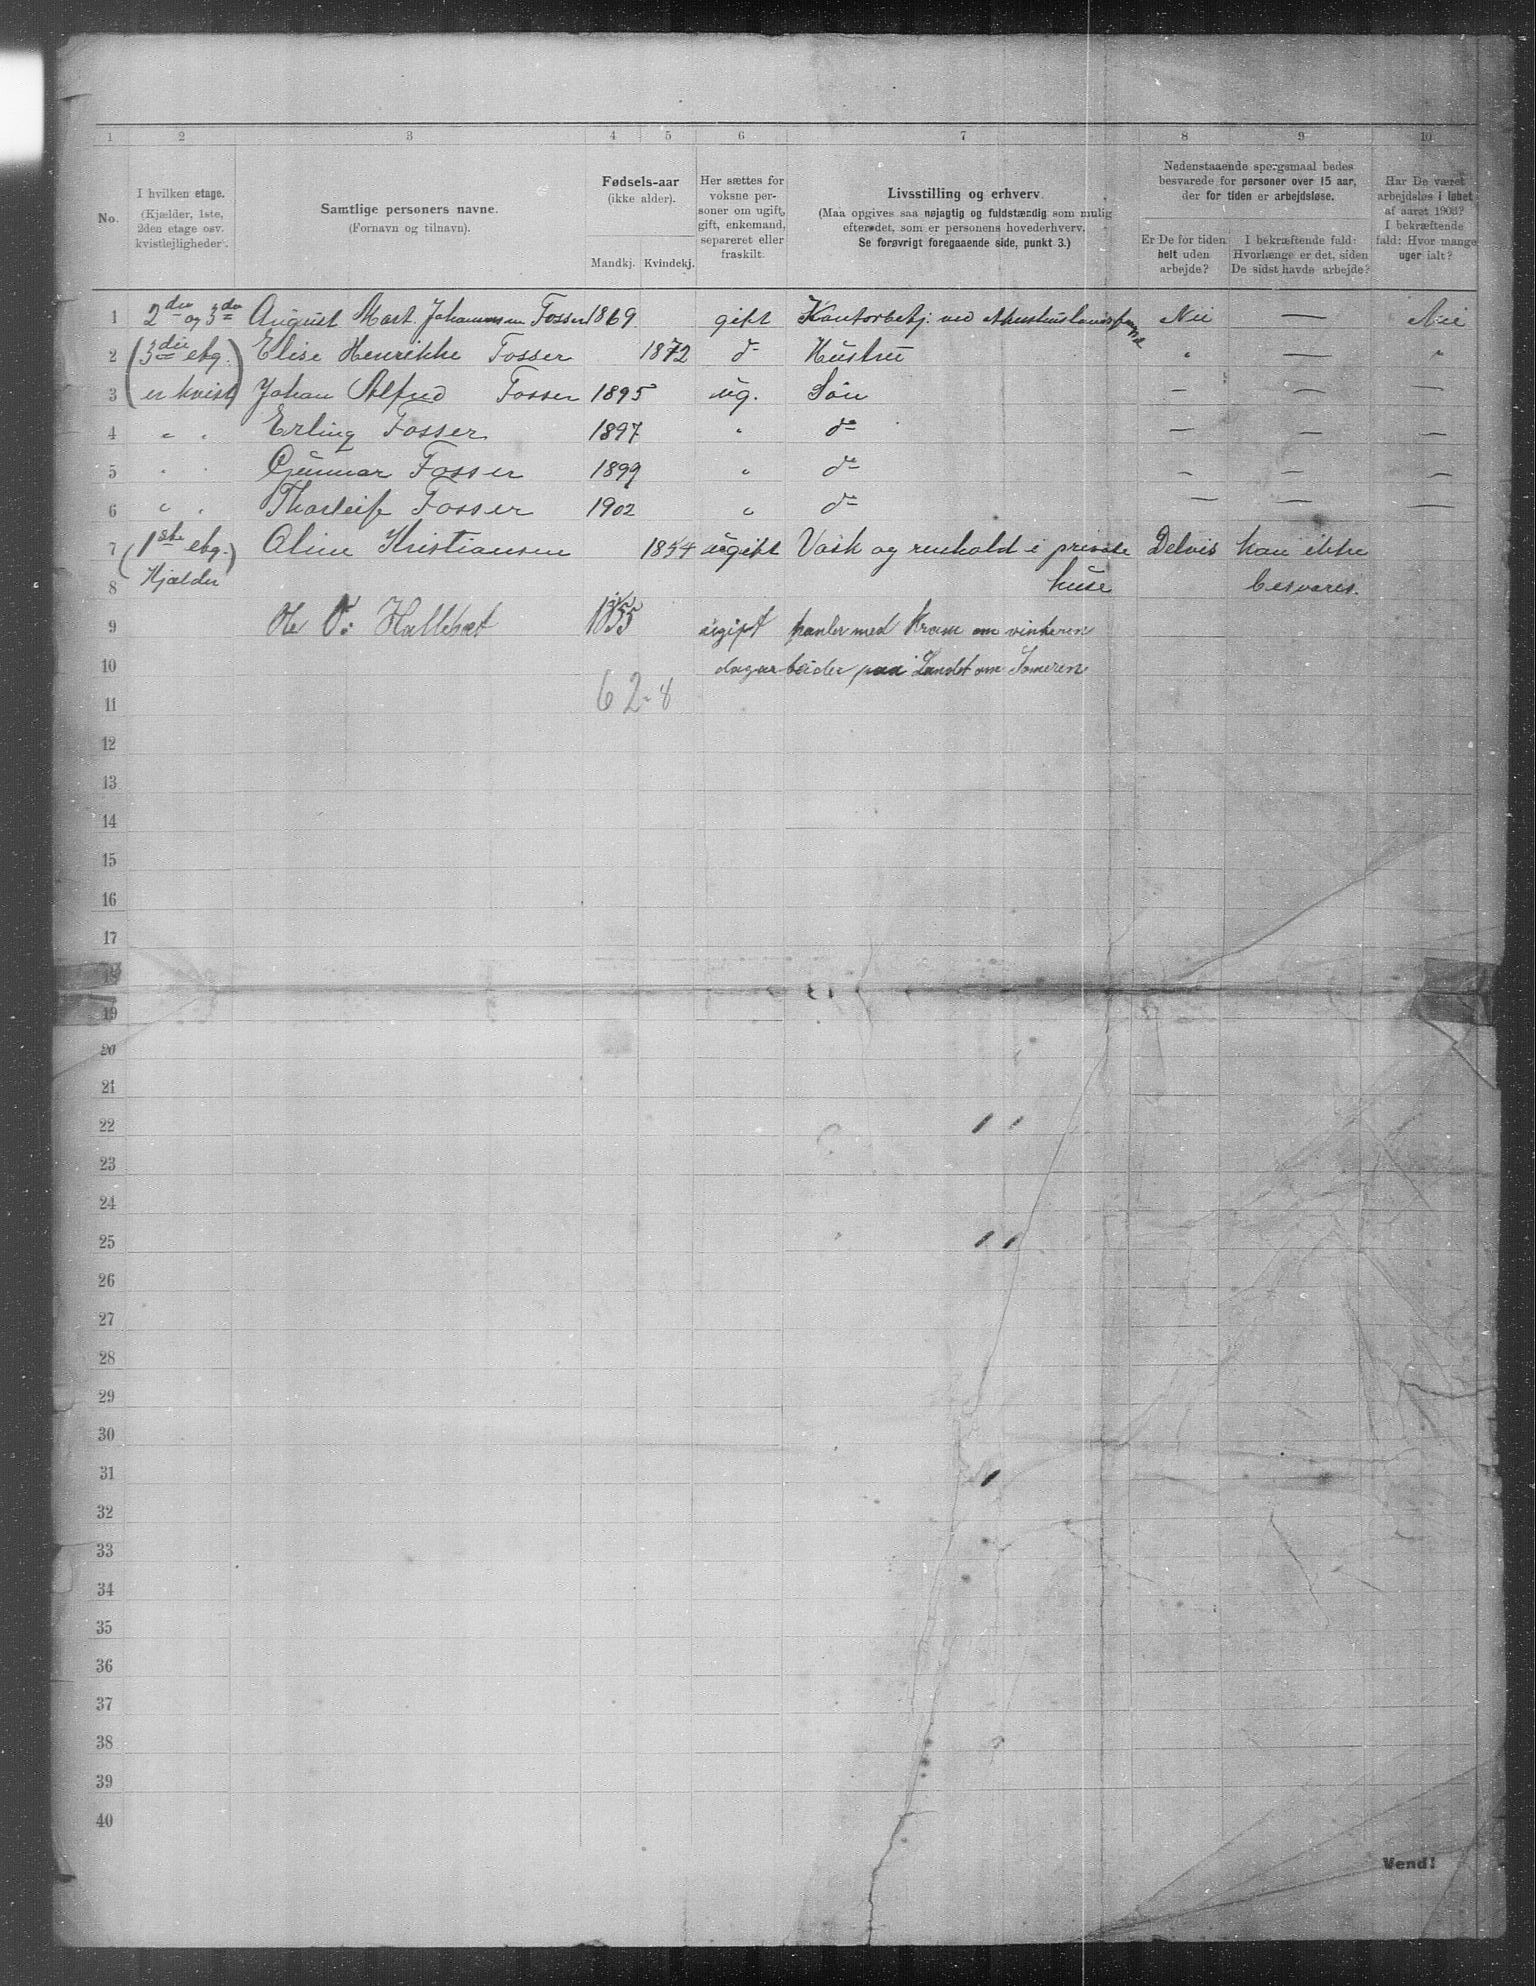 1 2 3 4 5 6 7 8 9 10
No.
I hvilken etage.
(Kjælder, 1ste,
2den etage osv.
kvistlejligheder.
Samtlige personers navne.
(Fornavn og tilnavn).
Fødsels-aar
(ikke alder).
Mandkj. Kvindekj.
Her sættes for
voksne per-
soner om ugift,
gift, enkemand,
separeret eller
fraskilt.
Livsstilling og erhverv.
(Maa opgives saa nøjagtig og fuldstændig som mulig
efter det, som er personens hovederhverv.
Se forøvrigt foregaaende side, punkt 3.)
Nedenstaaende spørgsmaal bedes
besvarede for personer over 15 aar,
der for tiden er arbejdsløse.
Er De for tiden
helt uden
arbejde?
I bekræftende fald:
Hvorlænge er det, siden
De sidst havde arbejde?
Har De været
arbejdsløs i løbet
af aaret 1903?
I bekræftende
fald: Hvor mange
uger ialt?
1 2den og 3die August Mart. Johannesen Fosser 1869 gift Kontorbetj. ved Akershus landsfængsel Nei — Nei
2 (3die etg. Elise Henrikke Fosser 1872 do Hustru " — "
3 er kvist) Johan Alfred Fosser 1895 ug. Søn — — —
4 " " Erling Fosser 1897 " do — — —
5 " " Gunnar Fosser 1899 " do — — —
6 " " Thorleif Fosser 1902 " do — — —
7 (1ste etg.) Oline Kristiansen 1854 ugift Vask og renhold i private Delvis kan ikke
8 Kjælder huse besvares.
9 Ole O: Hallebæt 1855 ugift hanler med Kram om vinteren
10 dagarbeider paa Landet om Someren
11 62-8
12
13
14
15
16
17
18
19
20
21
22
23
24
25
26
27
28
29
30
31
32
33
34
35
36
37
38
39
40
Vend!